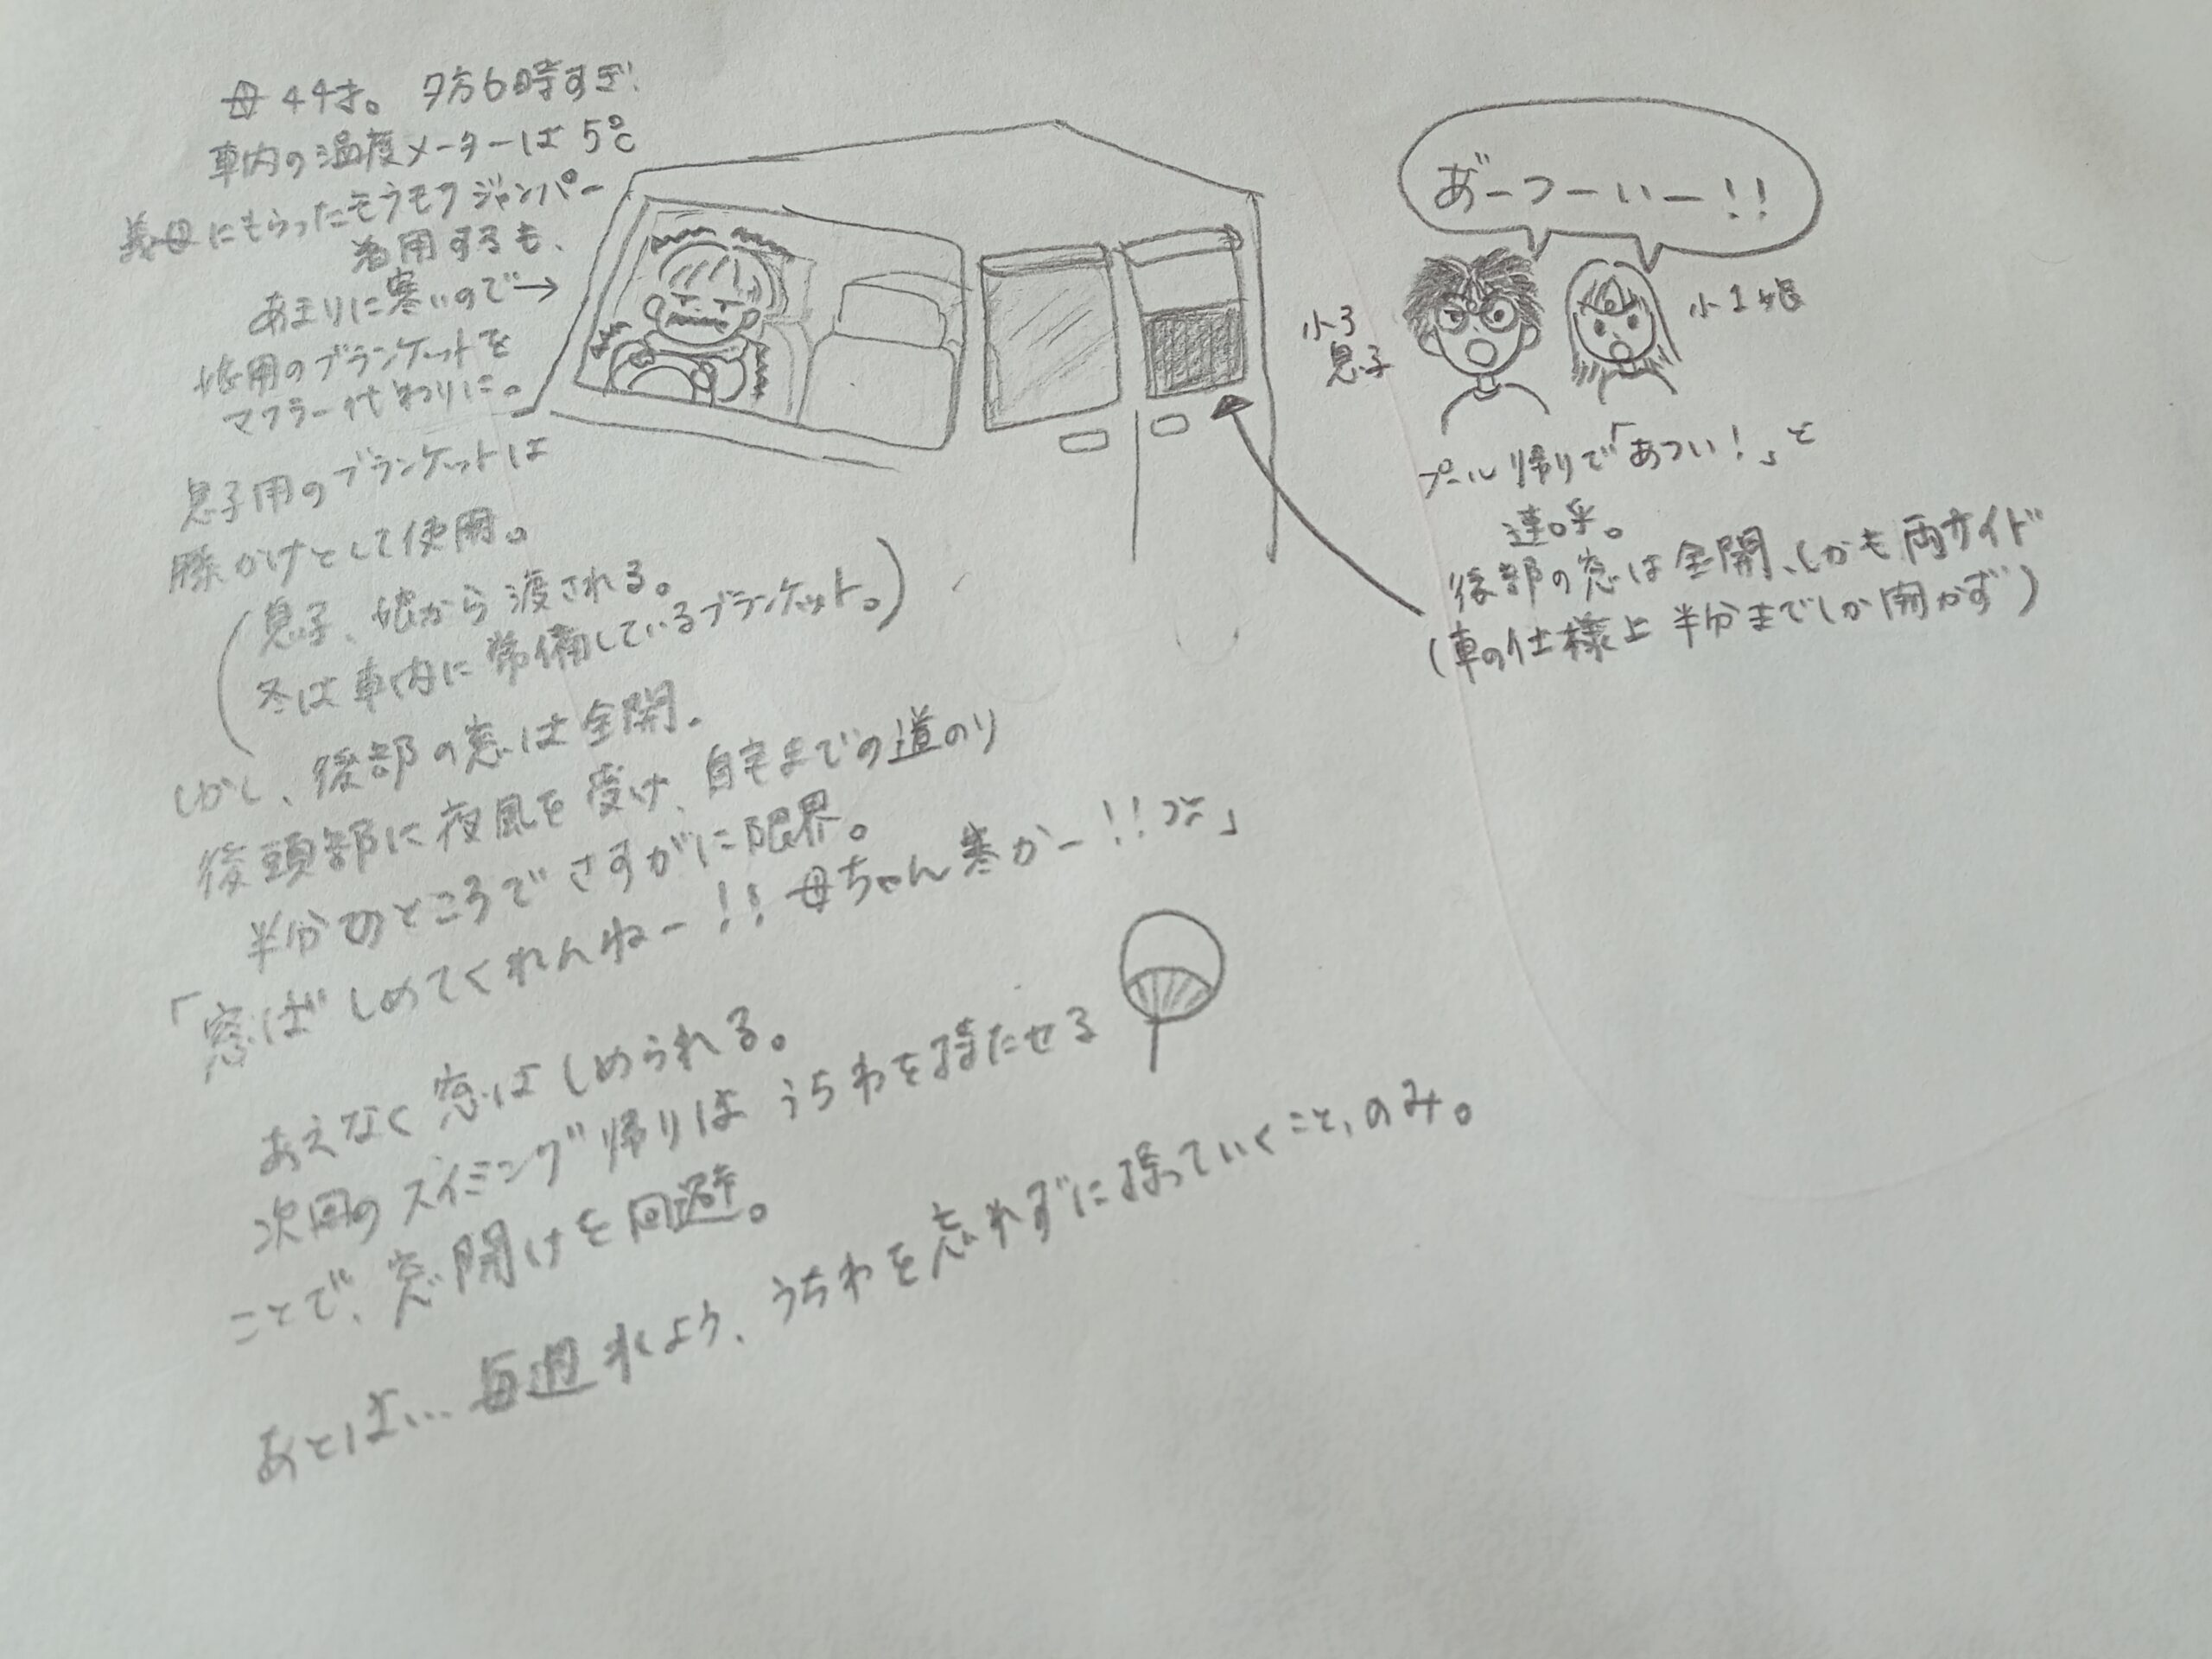 母44才。夕方6時すぎ、
車内の温度メーターは5℃
義母にもらったモフモフジャンパー
着用するも、
あまりに寒いので→
娘用のブランケットを
マフラー代わりに。
息子用のブランケットは
膝かけとして使用。
(息子、娘から渡される。
冬は車内に常備しているブランケット。)
しかし、後部の窓は全開。
後頭部に夜風を受け、自宅までの道のり
半分のところでさすがに限界。
「窓ばしめてくれんねー!!母ちゃん寒かー!!」
あえなく窓はしめられる。
次回のスイミング帰りはうちわを持たせる
ことで、窓開けを回避。
あとは…毎週水よう、うちわを忘れずに持っていくこと、のみ。
あ゛ーつーいー!!
小3
息子
小1娘
プール帰りで「あつい!」と
連呼。
後部の窓は全開、しかも両サイド
(車の仕様上半分までしか開かず)